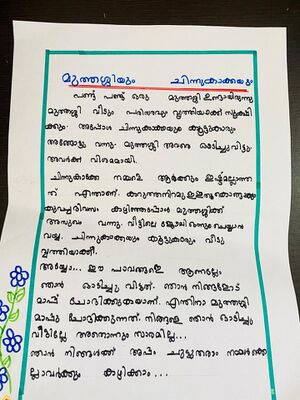 മുത്തശ്ശിയും ചിന്നുകാക്കയും
പണ്ട് പണ്ട് ഒരു മുത്തശ്ശി ഉണ്ടായിരുന്നു
മുത്തശ്ശി വീടും പരിസരവും വൃത്തിയാക്കി സൂക്ഷി
ക്കും. അപ്പോൾ ചിന്നുകാക്കയും കൂട്ടുകാരും
അങ്ങോട്ടു വന്നു. മുത്തശ്ശി അവരെ ഓടിച്ചുവിട്ടു.
അവർക്ക് വിഷമമായി.
ചിന്നുകാക്കേ നമ്മളെ ആർക്കും ഇഷ്ടമല്ലന്നാ
ത് എന്താണ്. കറുത്തനിറമു
കുറച്ചുദിവസം കഴിഞ്ഞപ്പോൾ മുത്തശ്ശിക്ക്
അസുഖം വന്നു. വീട്ടിലെ ജോലി ഒന്നും ചെയ്യാൻ
വയ്യ. ചിന്നുകാക്കയും കൂട്ടുകാരും വീടു
വൃത്തിയാക്കി.
അയ്യോ... ഈ പാവങ്ങളെ ആണല്ലോ
ഞാൻ ഓടിച്ചു വിട്ടത്. ഞാൻ നിങ്ങളോട്
മാപ്പ് ചോദിക്കുകയാണ്. എന്തിനാ മുത്തശ്ശി
മാപ്പു ചോദിക്കുന്നത്. നിങ്ങളെ ഞാൻ ഓടിച്ചും
വിട്ടില്ലേ അതൊന്നും സാരമില്ല...
ഞാൻ നിങ്ങൾക്ക് അപ്പം ചുട്ടുതരാം നമ്മൾക്കെ
ല്ലാവർക്കും കഴിക്കാം...